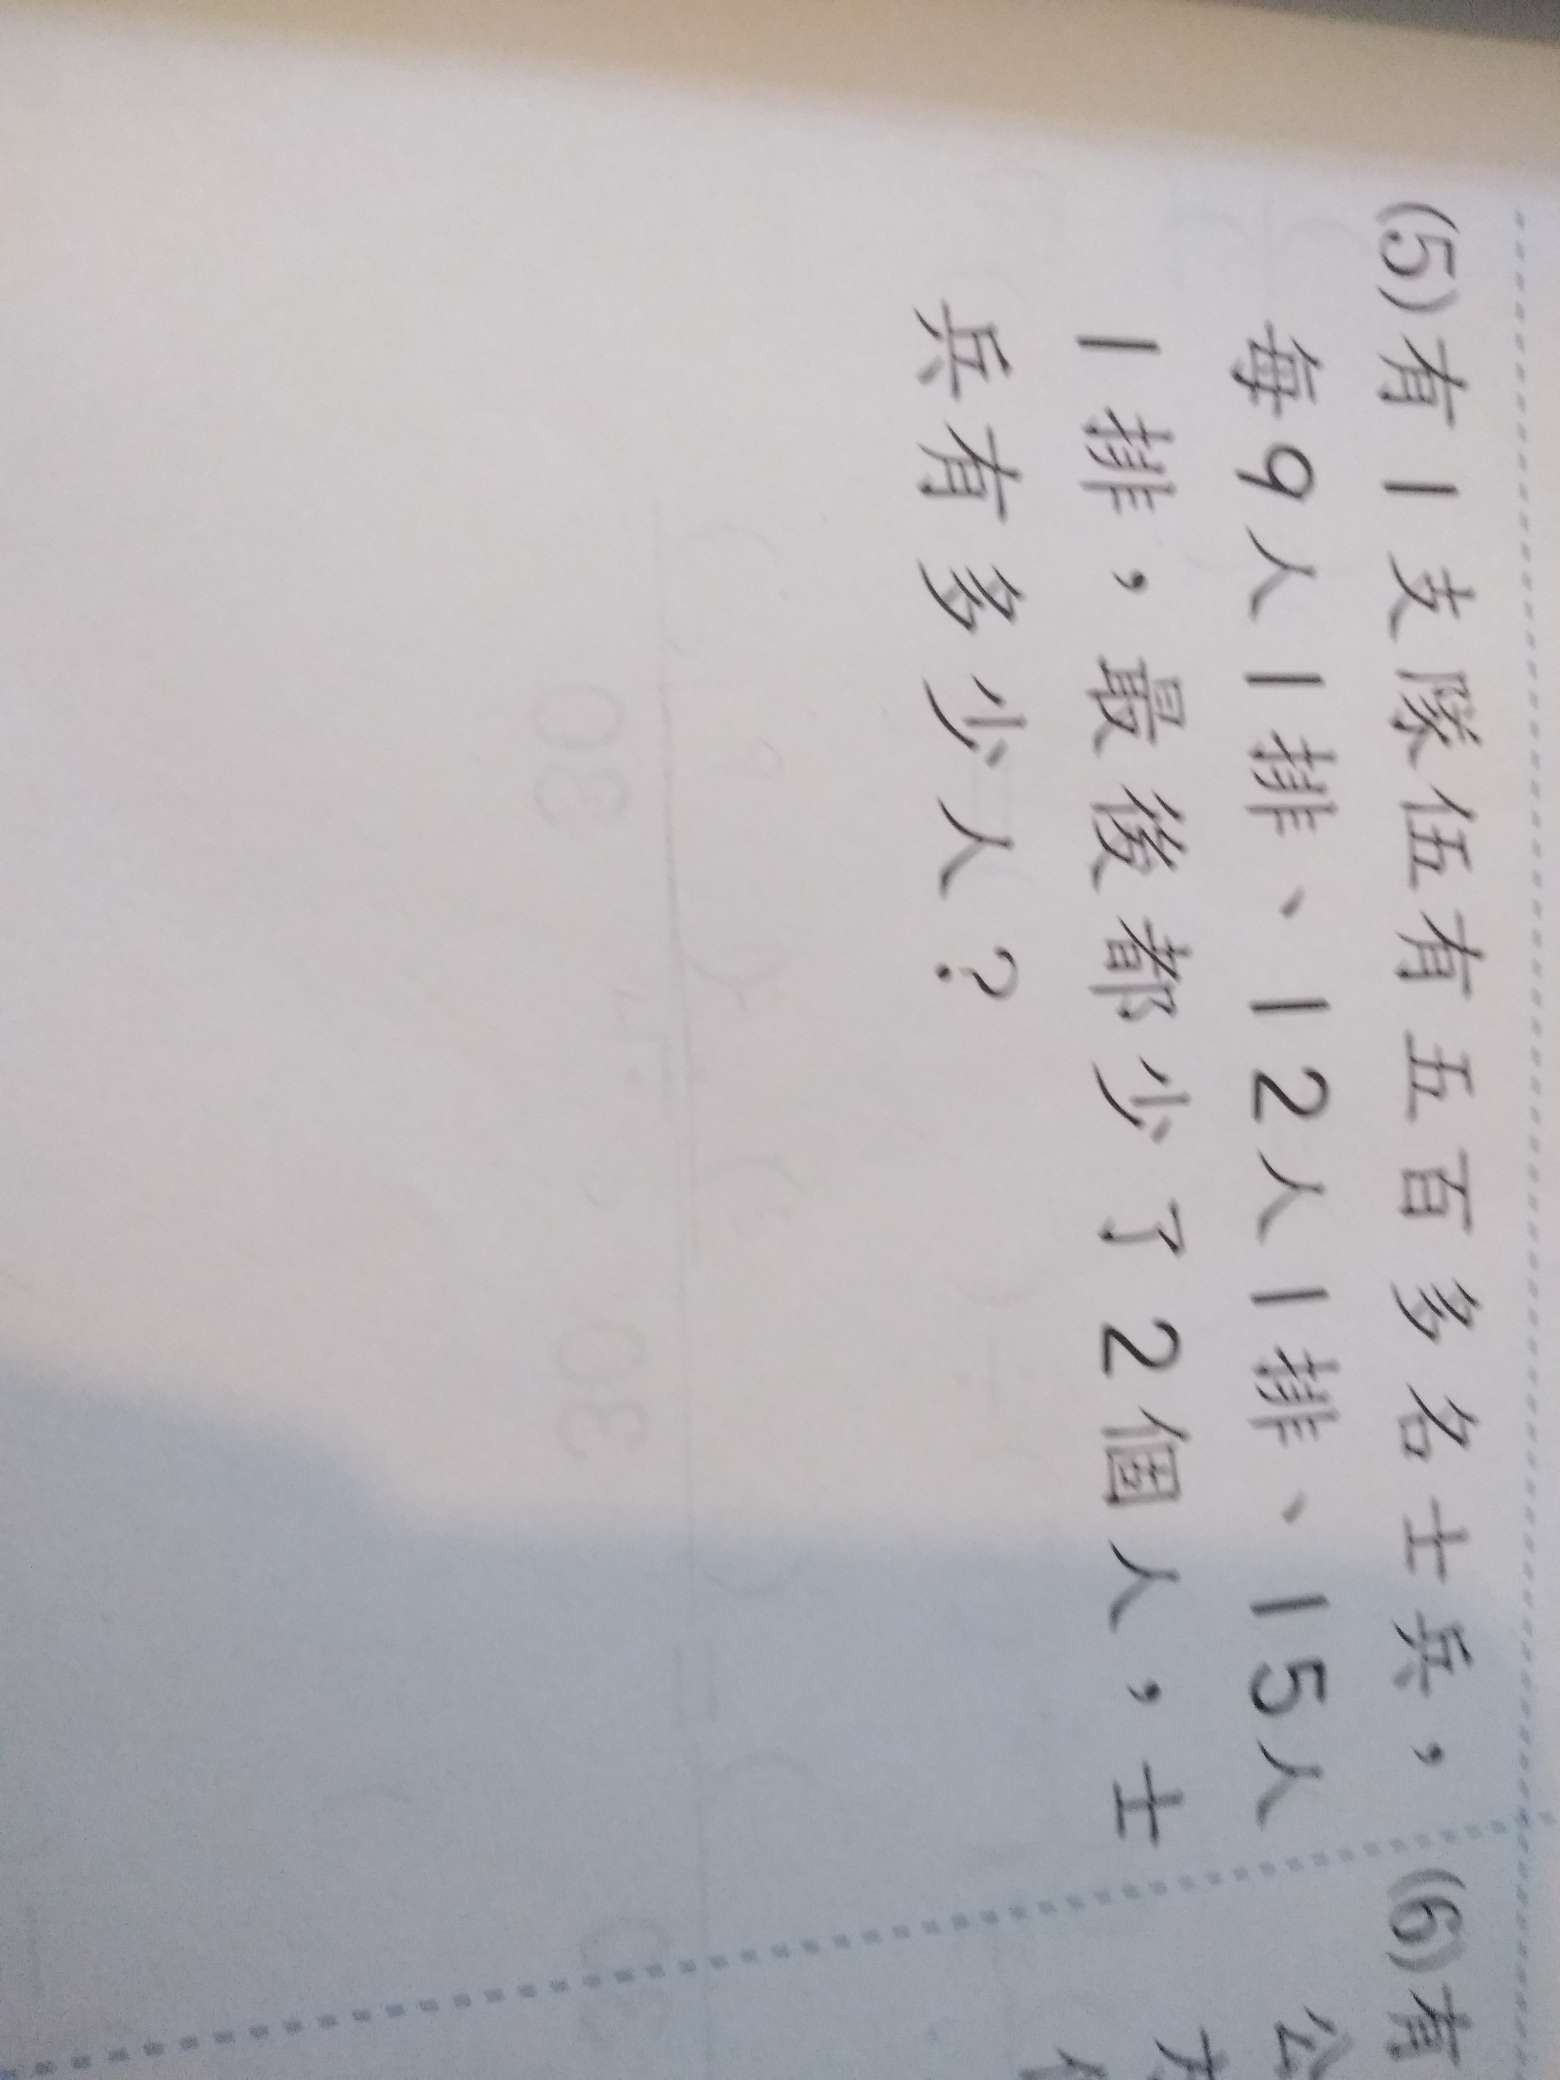 (5)有1支隊伍有五百多名士兵，
每9人1排、12人1排、15人
1排，最後都少了2個人，士
兵有多少人？
(6)有
公